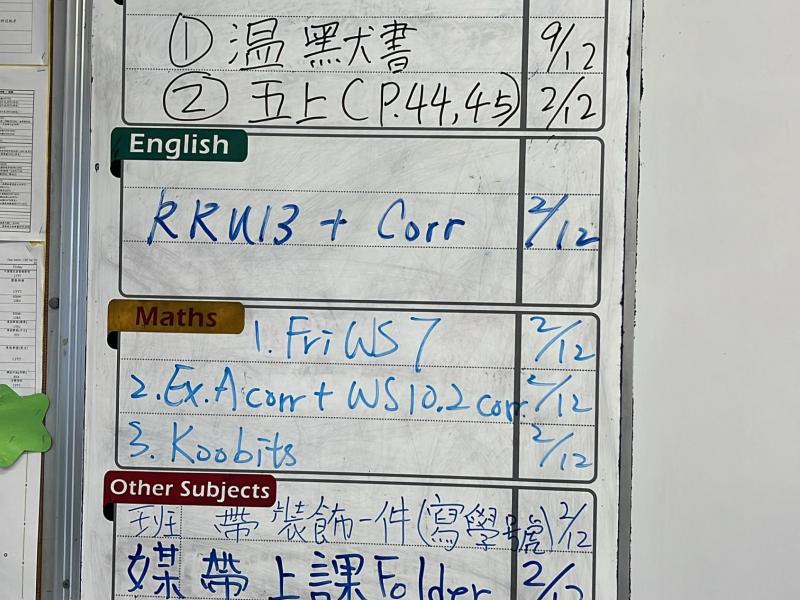 ① 温 默犬書 9/12
② 五上(P.44,45) 2/12
English
RRU13 + Corr 2/12
Maths
1. Fri WS 7 2/12
2. Ex.A corr + WS10.2 corr. 2/12
3. Koobits 2/12
Other Subjects
班 帶裝飾一件(寫學號) 2/12
媒 帶上課Folder 2/12